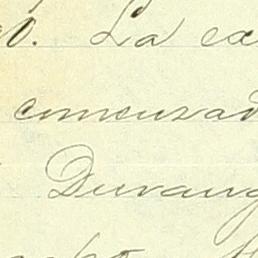 o. La ex
comenzad
Durang